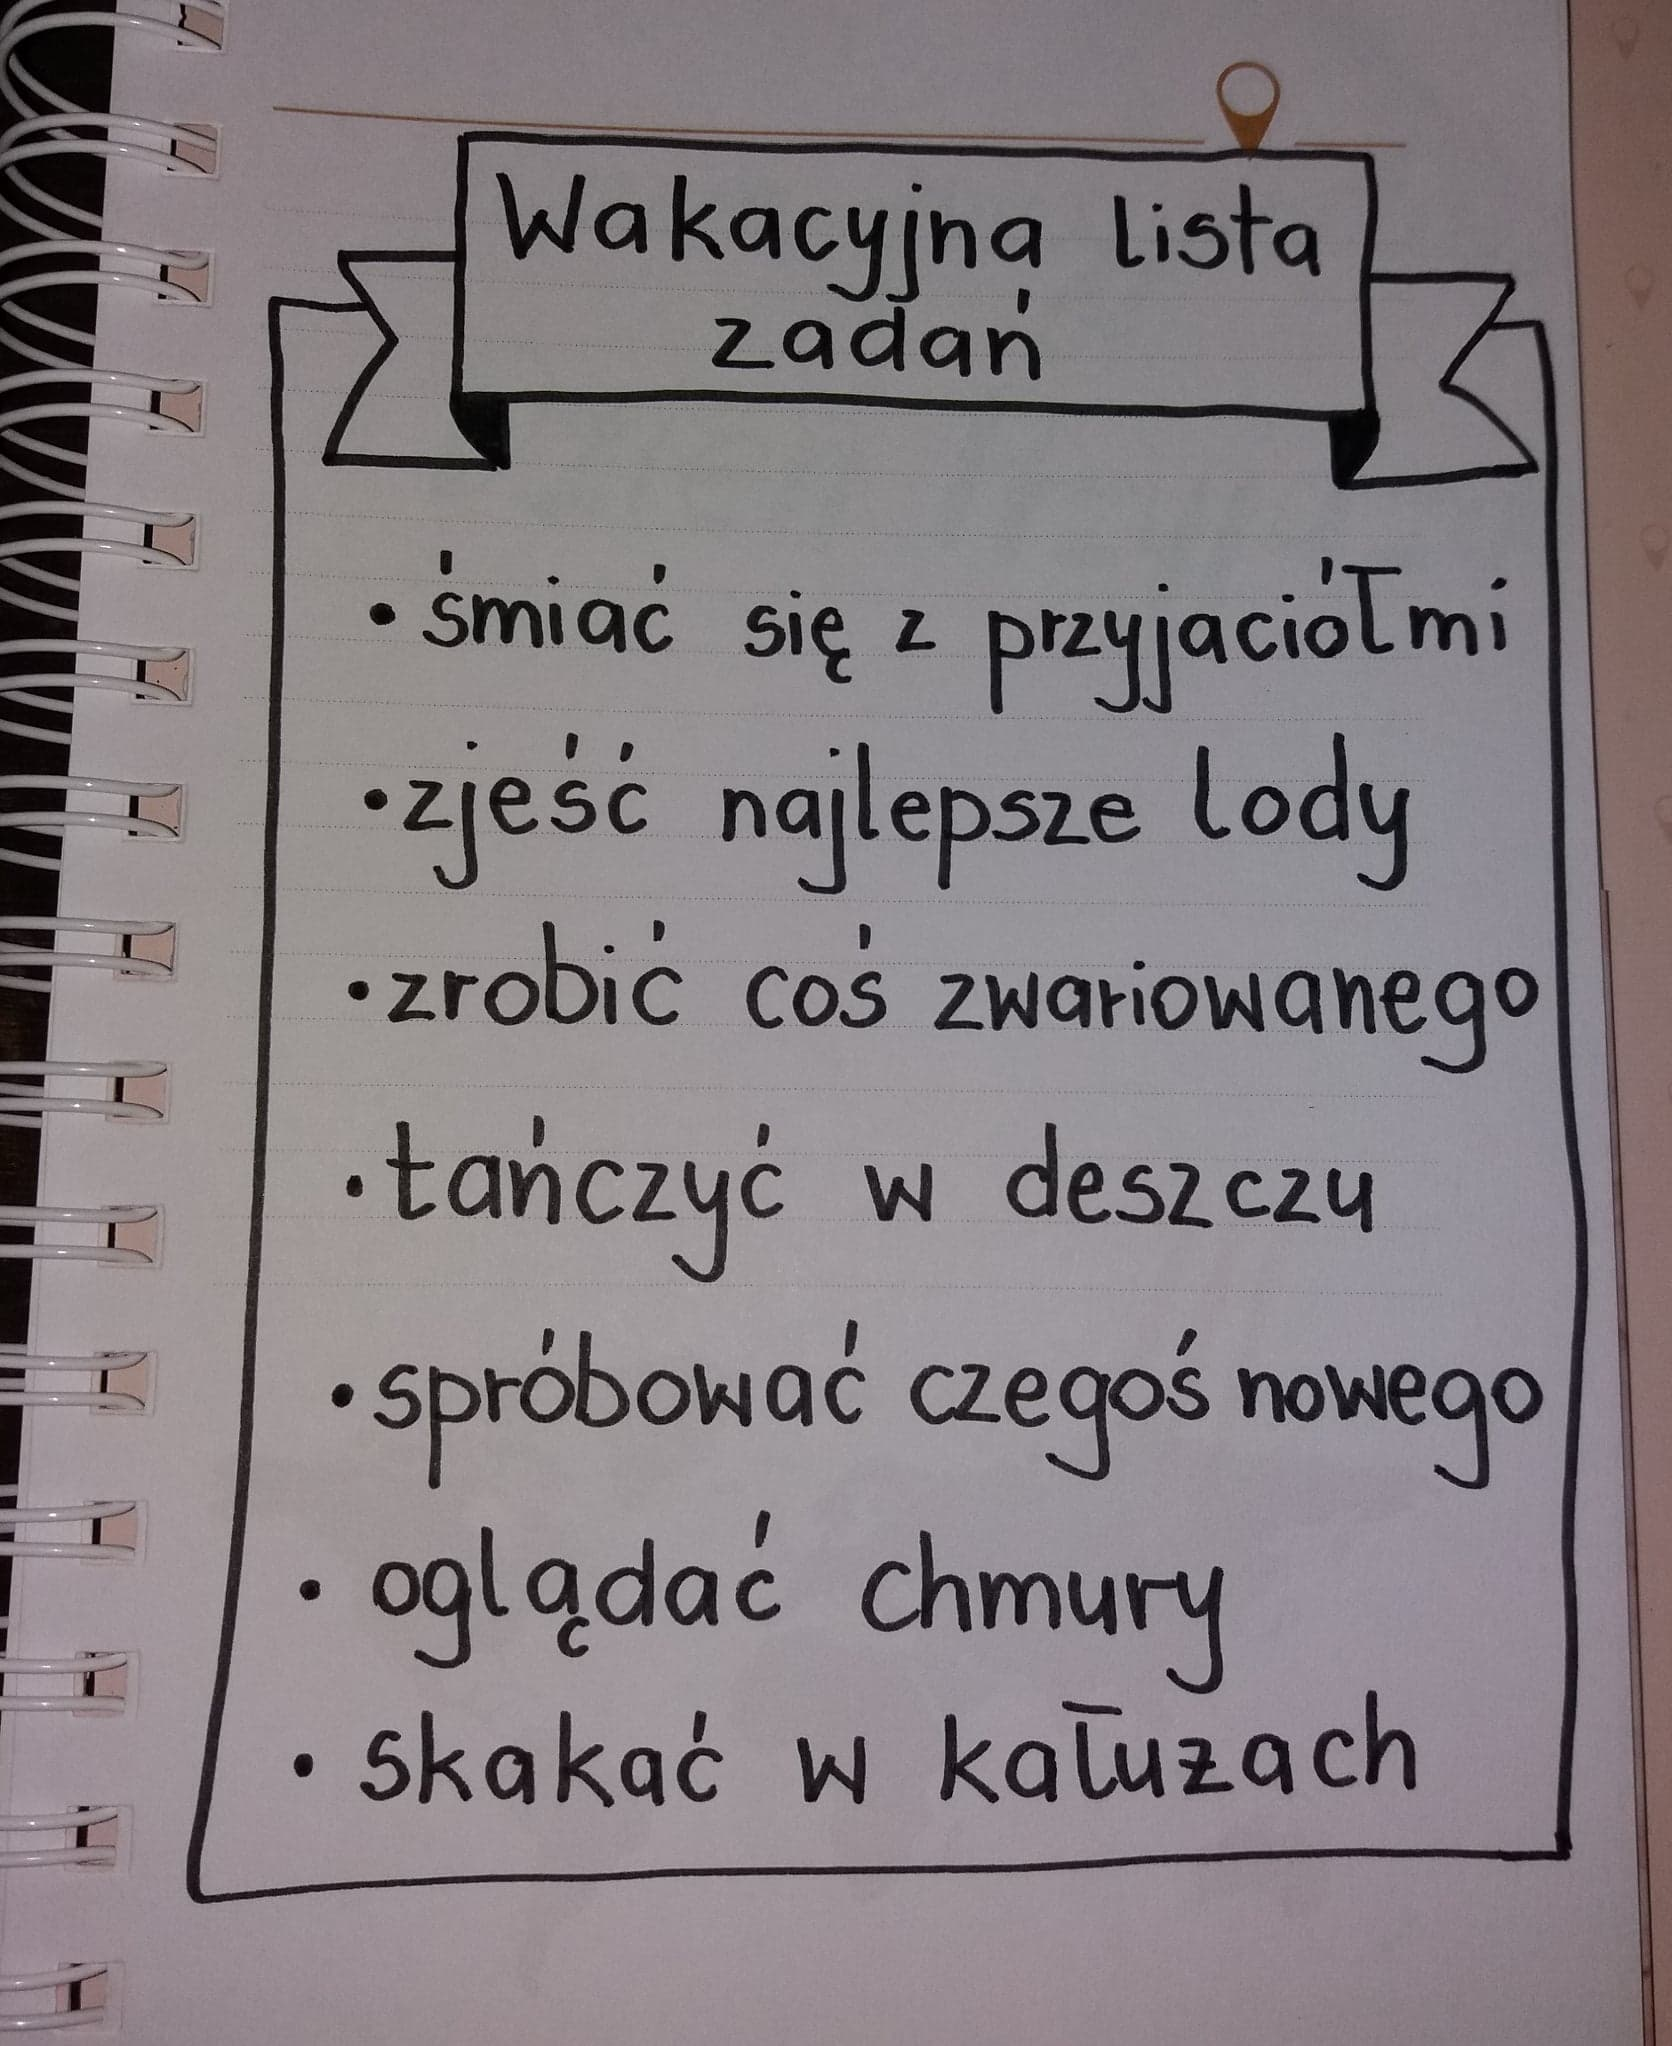 Wakacyjna lista
zadań
• śmiać się z przyjaciółmi
• zjeść najlepsze lody
• zrobić coś zwariowanego
• tańczyć w deszczu
• spróbować czegoś nowego
• oglądać chmury
• skakać w kałużach